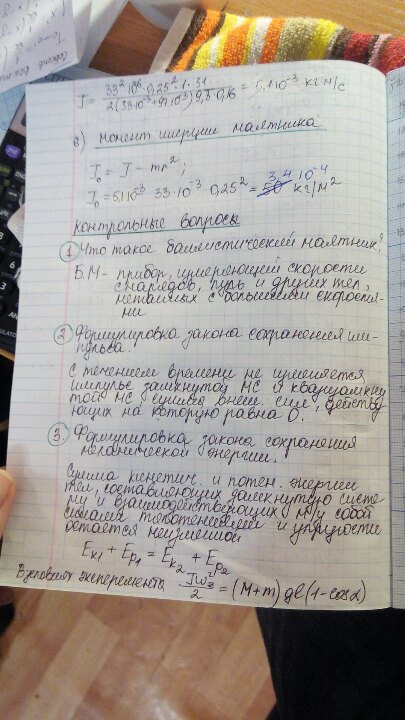 J = 33² · 10⁻⁶ · 0,25² · 1 · 31 / 2(33·10⁻³+97·10⁻³) 9,8 · 0,16 = 5,1·10⁻³ кг·м/с
в) момент инерции маятника.
J₀ = J - mr²;
J₀ = 5,1·10⁻³ - 33·10⁻³ · 0,25² = 3,4·10⁻⁴ кг/м²
контрольные вопросы
1 Что такое баллистический маятник?
Б.М- прибор, измеряющий скорости
снарядов, пуль и других тел,
метаемых с большими скоростя-
ми
2 Формулировка закона сохранения им-
пульса.
С течением времени не изменяется
импульс замкнутой МС и квазизамкну
той МС сумма внеш. сил, действу-
ющих на которую равна 0.
3. Формулировка закона сохранения
механической энергии.
Сумма кинетич. и потен. энергии
тел, составляющих замкнутую систе-
му и взаимодействующих м/у собой
силами тяготения и упругости
остается неизменной
Eк₁ + Eр₁ = Eк₂ + Eр₂
В условиях эксперемента Jω²/2 = (M+m) gl(1-cosα)